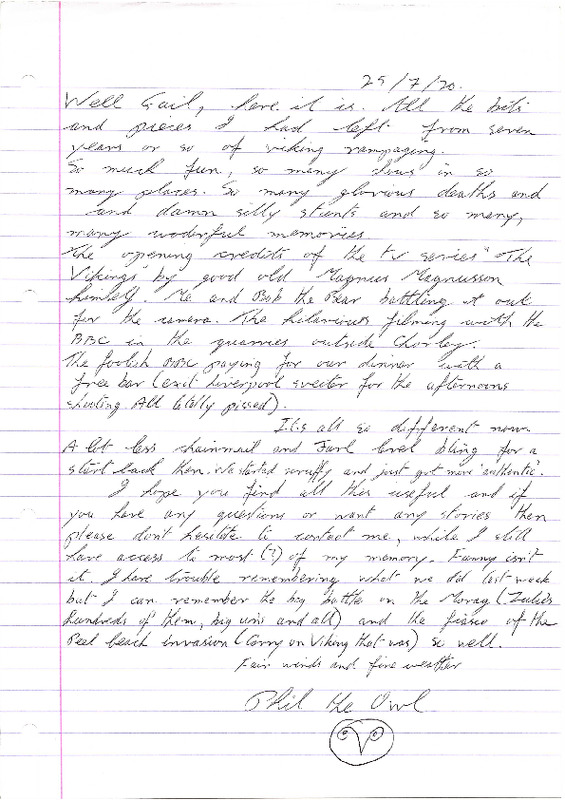 25/7/20.
Well Gail, here it is. All the bits
and pieces I had left from seven
years or so of viking rampaging.
So much fun, so many shows in so
many places. So many glorious deaths and
and damn silly stunts and so many,
many woderful memories
The opening credits of the tv series "The
Vikings" by good old Magnus Magnusson
himself. Me and Bob the Bear battling it out
for the camera. The hilarious filming with the
BBC in the quarries outside Chorley.
The foolish BBC paying for our dinner with a
free bar (exit Liverpool sveiter for the afternoons
shooting. All totally pissed).
It.s all so different now.
A lot less chainmail and Jarl level bling for a
start back then. We started scruffy and just got more 'authentic'.
I hope you find all this useful and if
you have any questions or want any stories then
please don't hesitate to contact me, while I still
have access to most (?) of my memory. Funny isn't
it. I have trouble remembering what we did last week
but I can remember the big battle on the Moray (Zulu's
hundreds of them, big uns and all) and the fiasco of the
Peel beach invasion (Carry on Viking that was) so well.
Fair winds and fine weather
Phil the Owl